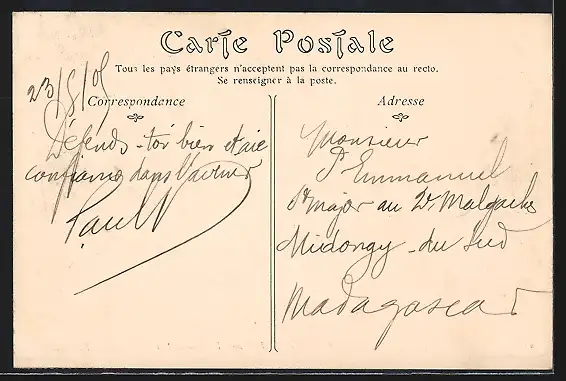 Carte Postale
Tous les pays étrangers n'acceptent pas la correspondance au recto.
Se renseigner à la poste.
Correspondance
23/8/05
Défends-toi bien et aie
confiance dans l'avenir
Paul
Adresse
Monsieur
P. Emmanuel
Sgt major au 2e Malgaches
Midongy-du Sud
Madagascar